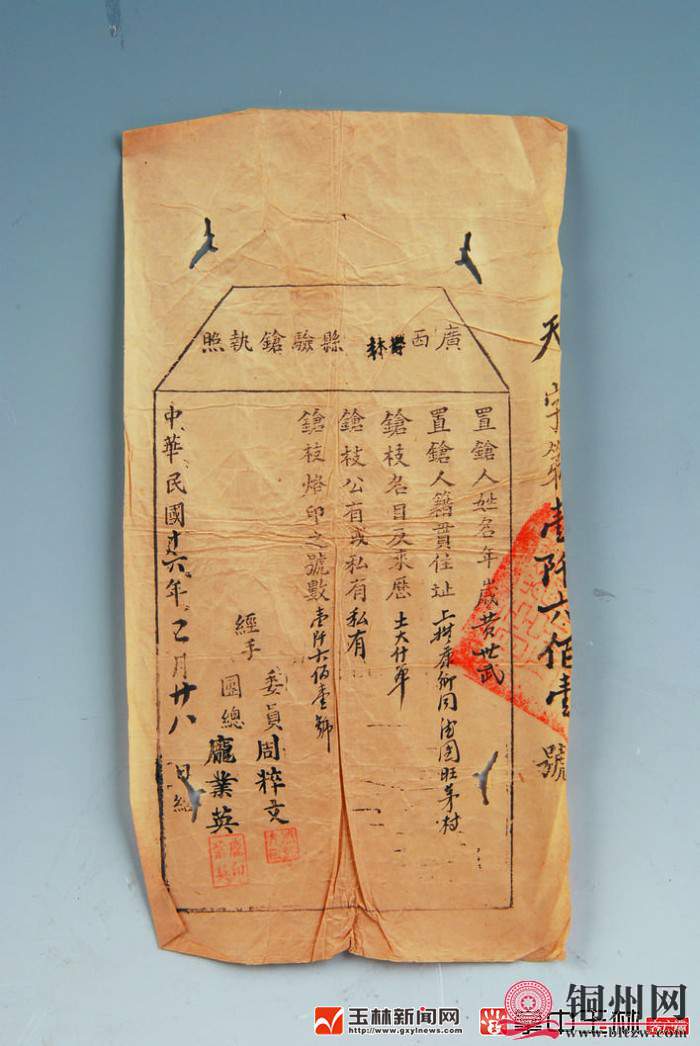 天字第壹阡六佰壹號
廣西欝林縣驗鎗執照
置鎗人姓名年歲 世武
置鎗人籍貫住址 旺茅村
鎗枝名目及來歷 土大什單
鎗枝公有或私有 私有
鎗枝烙印之號數 壹阡六佰壹號
經手 委員周粹文
團總龐業英
中華民國十六年二月廿八日給
玉林新闻网
www.gxylnews.com
掌中玉林
铜州网
www.bltzw.com